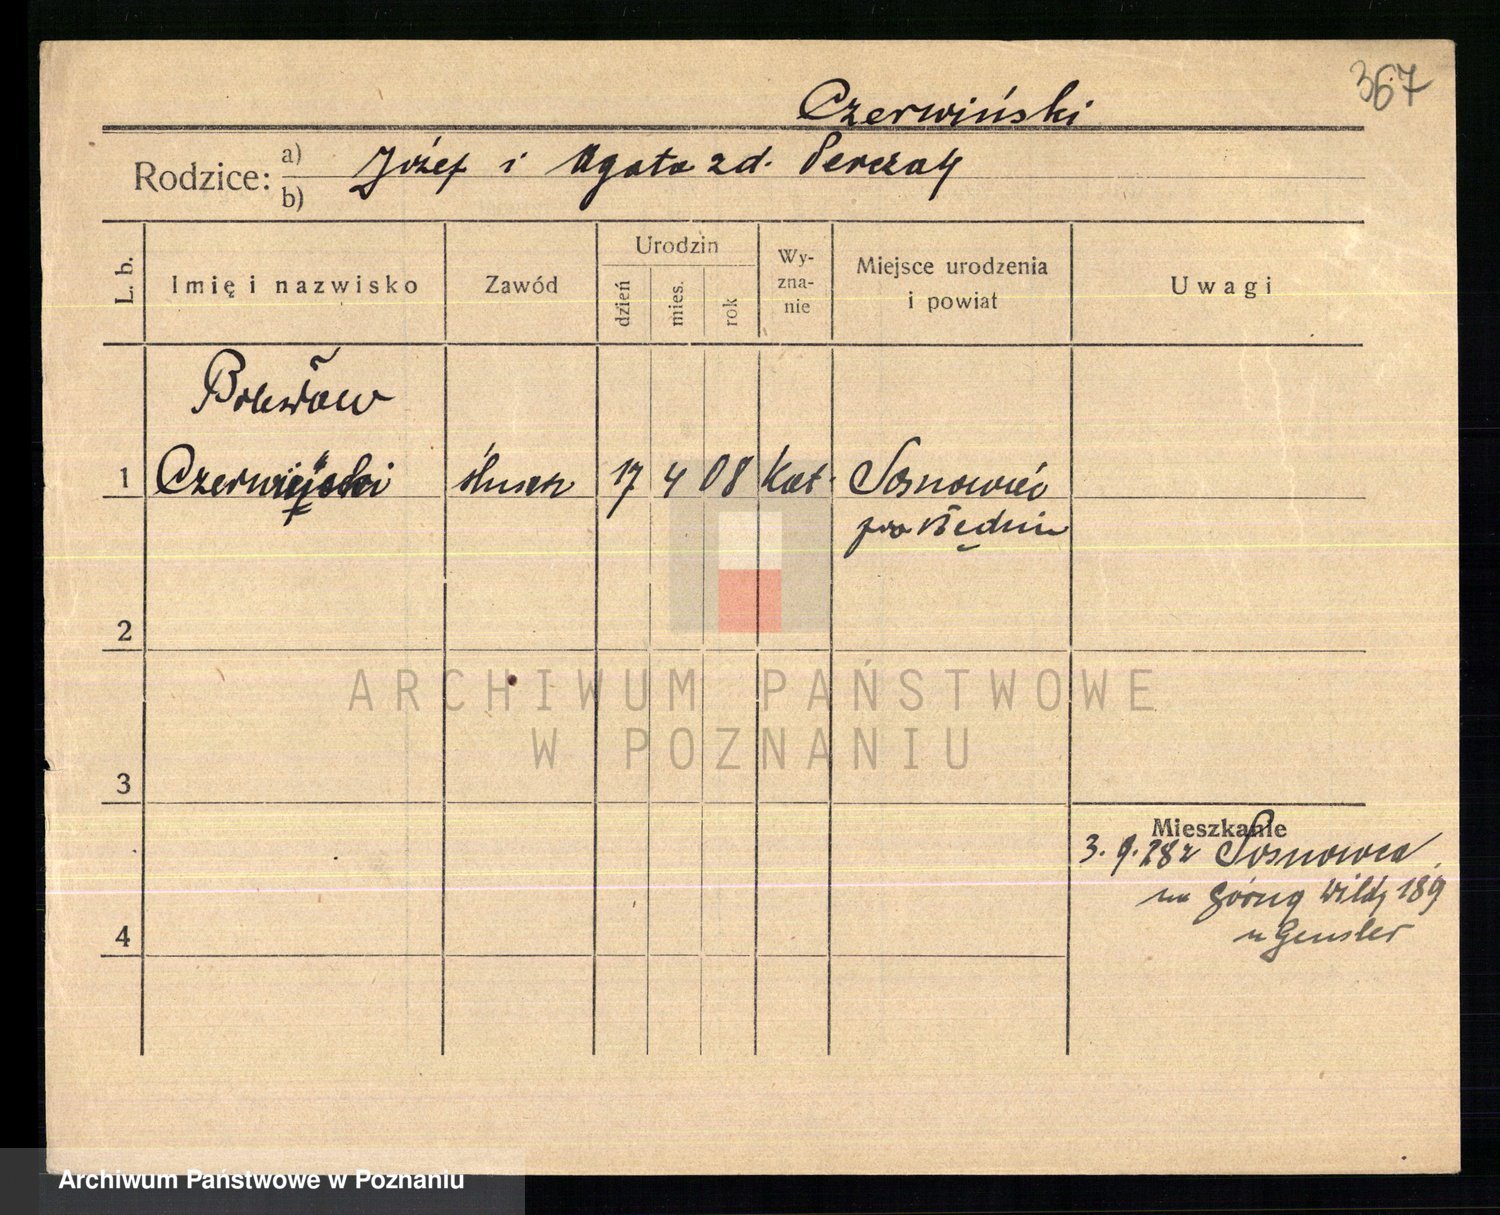 367
Czerwiński
Rodzice: a) Józef i Agata zd.
b)
L. b. Imię i nazwisko Zawód Urodzin dzień mies. rok Wyzna-nie Miejsce urodzenia i powiat Uwagi
Bolesław
1 Czerwiński ślusarz 17 4 08 Kat. Sosnowiec
pow Będzin
2
ARCHIWUM PAŃSTWOWE
W POZNANIU
3
Mieszkanie
3. 9. 28 z Sosnowca
na Górną Wildę 189
u Gensler
4
Archiwum Państwowe w Poznaniu